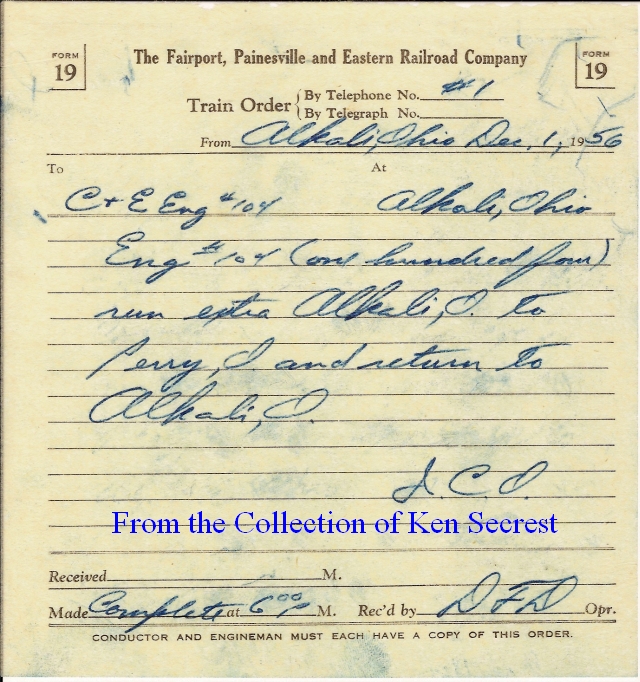 FORM 19
The Fairport, Painesville and Eastern Railroad Company
FORM 19
Train Order { By Telephone No. #1
By Telegraph No.
From Alkali, Ohio Dec. 1, 1956
To At
C + E Eng #104 Alkali, Ohio
Eng #104 (one hundred four)
run extra Alkali, O. to
Perry, O. and return to
Alkali, O.
J. C. O.
From the Collection of Ken Secrest
Received M.
Made Complete at 6 00 P M. Rec'd by D F D Opr.
CONDUCTOR AND ENGINEMAN MUST EACH HAVE A COPY OF THIS ORDER.